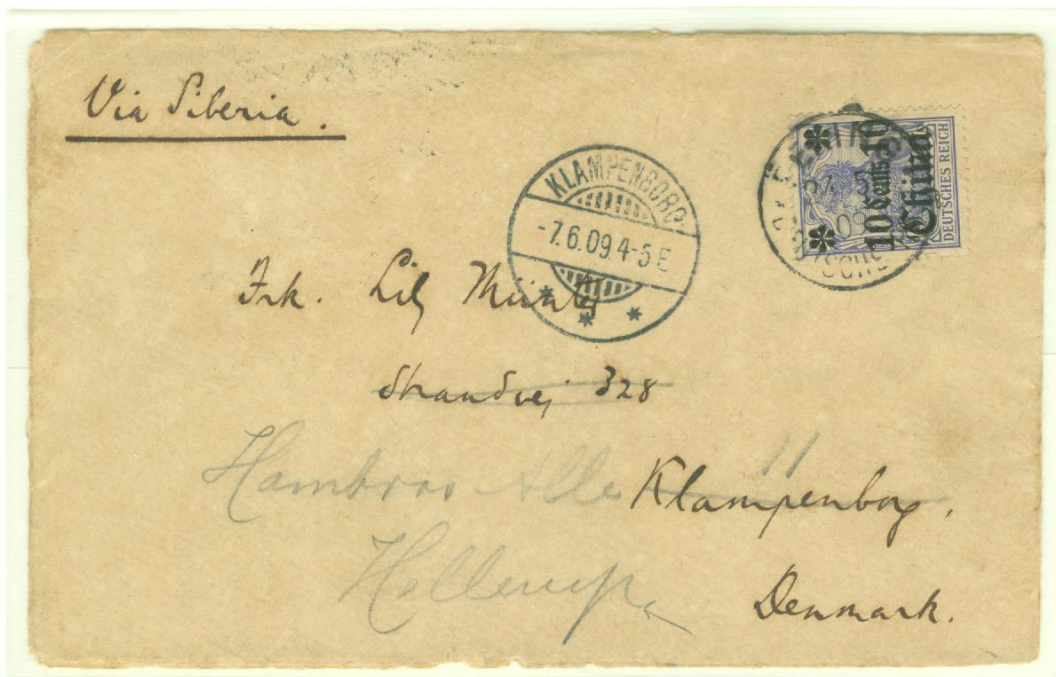 Via Siberia.
KLAMPENBORG.
-7.6.09.4-5 E
10 Cents 10
China
DEUTSCHES REICH
Frk. Lily
Strandvej 328
Hambros Alle 11
Klampenborg.
Hellerup
Denmark.